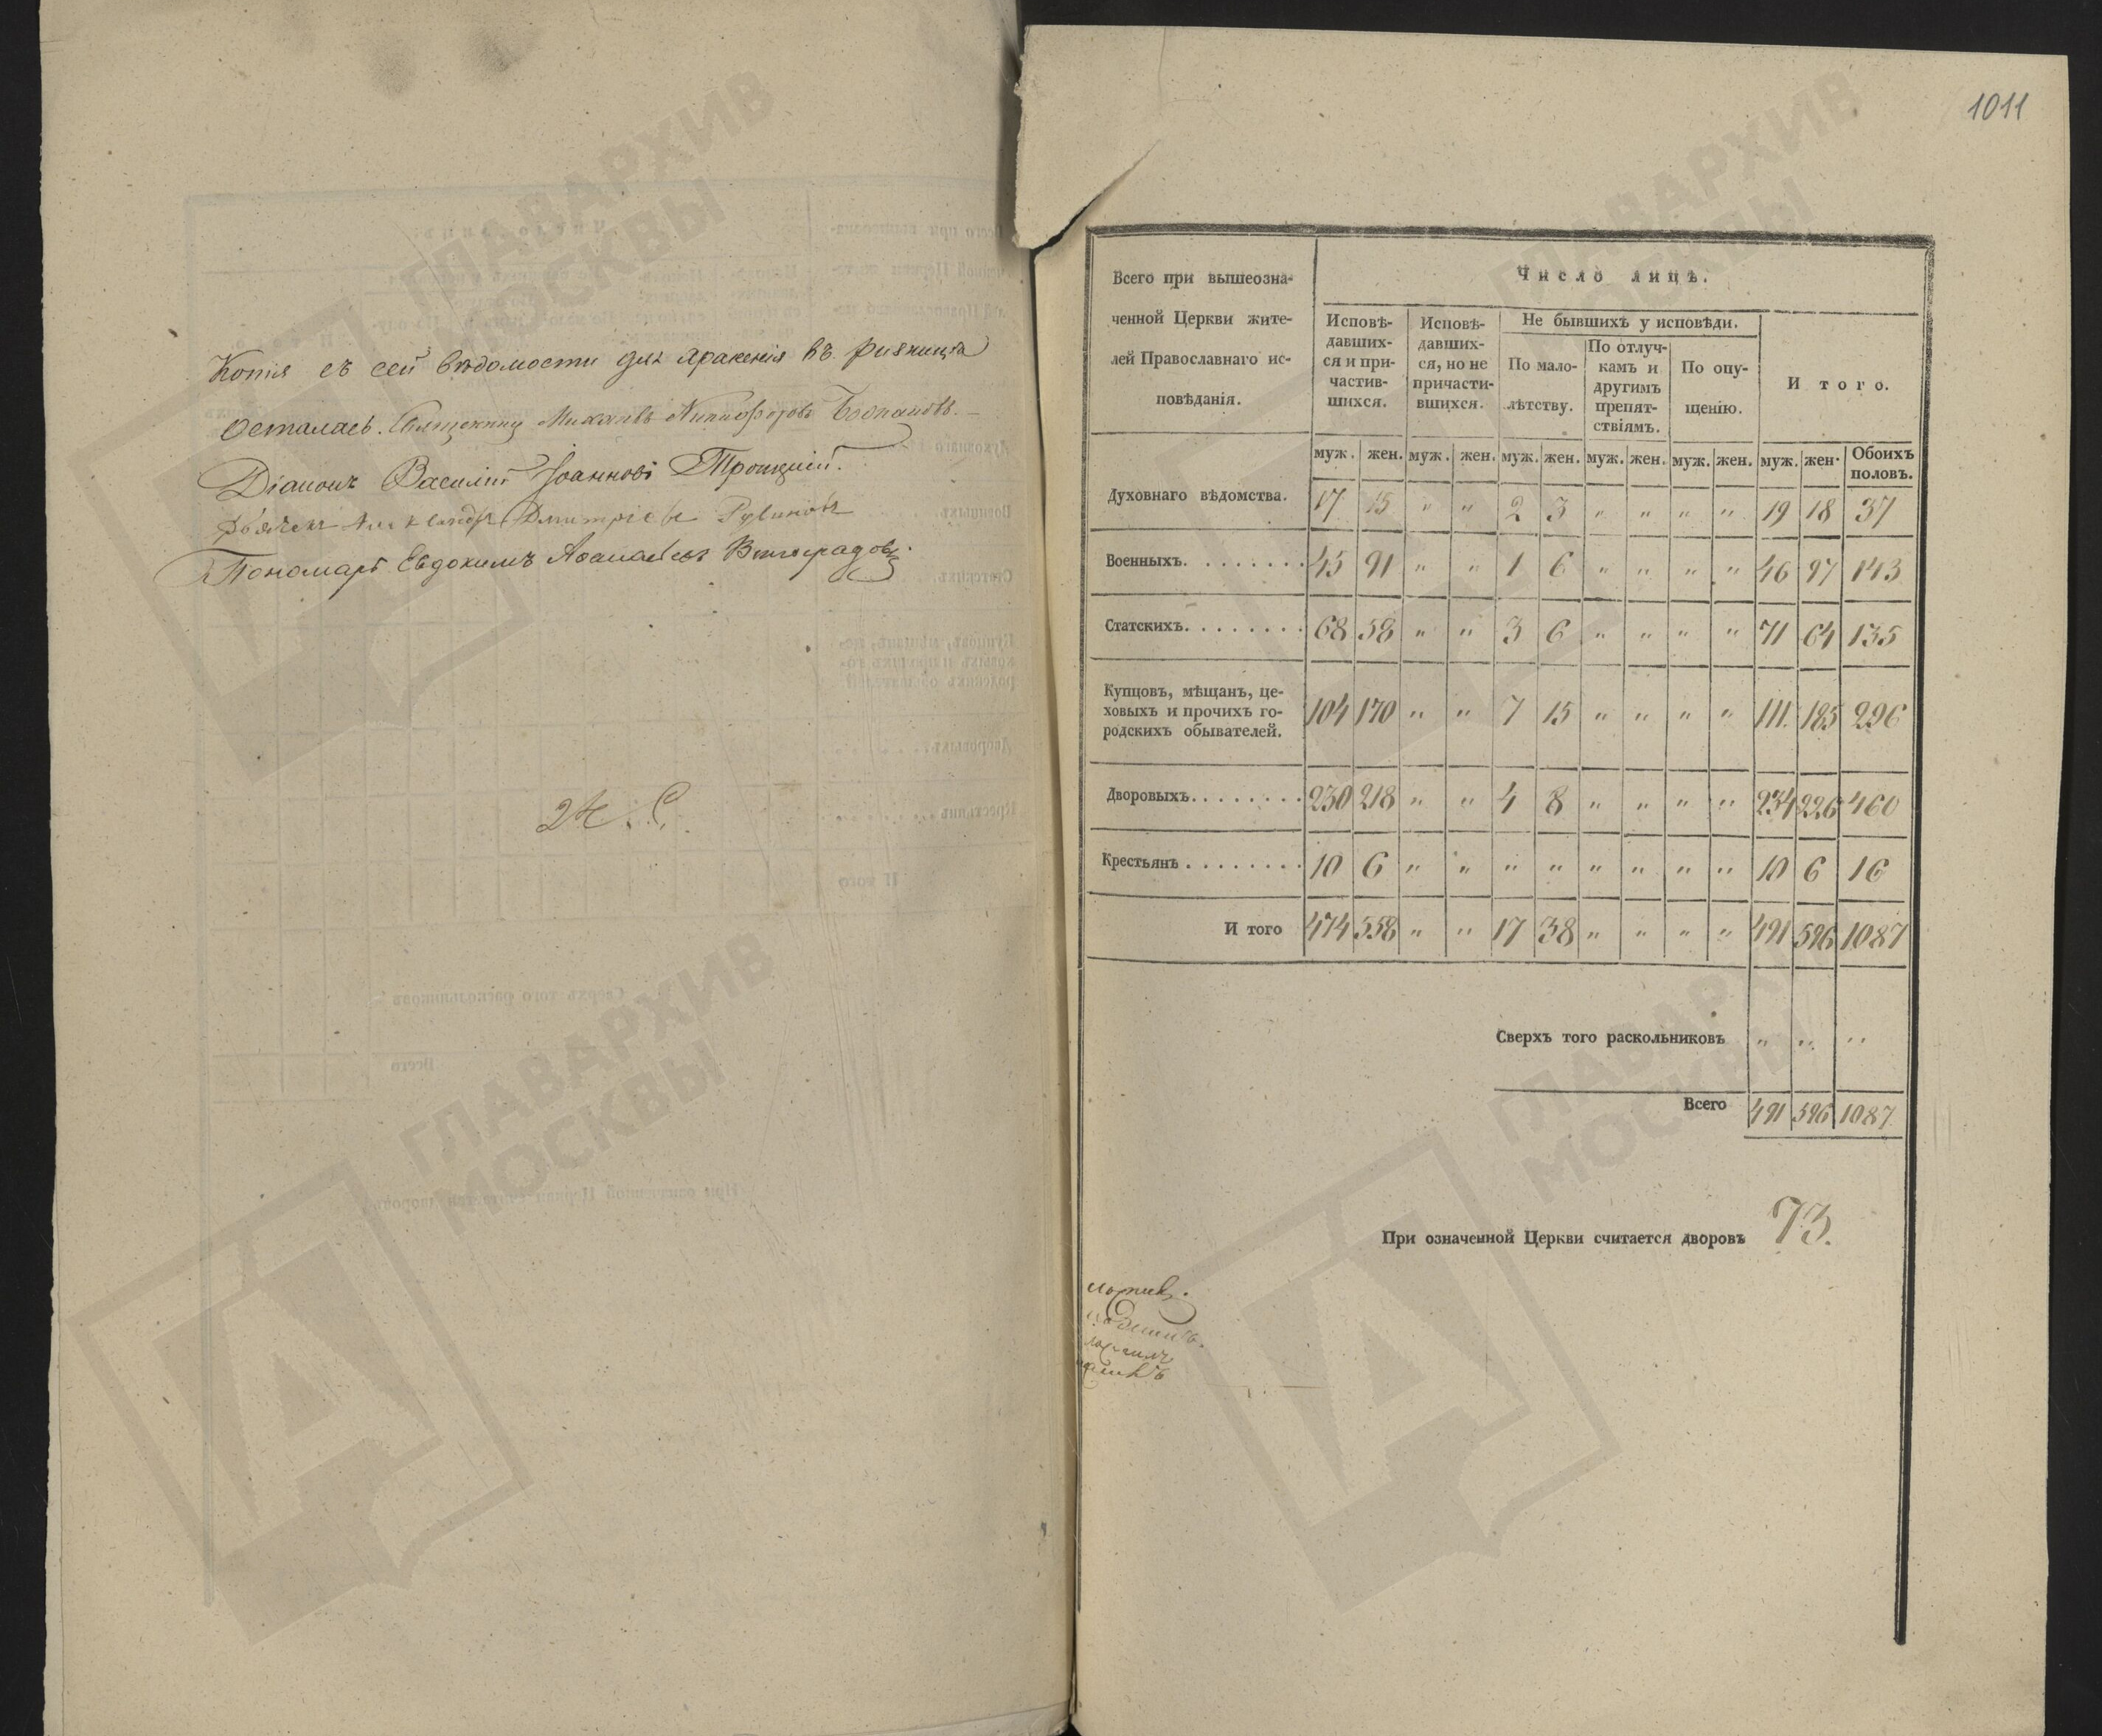 Копія съ сей вѣдомости для храненія въ ризницѣ
осталась. Священникъ Михаилъ Никифоровъ
Діаконъ Василій Іоанновъ Троицкій.
Дьячекъ Александръ Дмитріевъ
Пономарь Евдокимъ Аѳанасьевъ Виноградовъ.
1011
Всего при вышеозна-
ченной Церкви жите-
лей Православнаго ис-
повѣданія.
Число лицъ.
Исповѣ-
давших-
ся и при-
частив-
шихся.
Исповѣ-
давших-
ся, но не
причасти-
вшихся.
Не бывшихъ у исповѣди.
По мало-
лѣтству.
По отлуч-
камъ и
другимъ
препят-
ствіямъ.
По опу-
щенію.
И того.
муж. жен. муж. жен. муж. жен. муж. жен. муж. жен. муж. жен. Обоихъ
половъ.
Духовнаго вѣдомства. 17 15 " " 2 3 " " " " 19 18 37
Военныхъ. . . . . . . . 45 91 " " 1 6 " " " " 46 97 143
Статскихъ. . . . . . . . 68 58 " " 3 6 " " " " 71 64 135
Купцовъ, мѣщанъ, це-
ховыхъ и прочихъ го-
родскихъ обывателей. 104 170 " " 7 15 " " " " 111 185 296
Дворовыхъ. . . . . . . . 230 218 " " 4 8 " " " " 234 226 460
Крестьянъ . . . . . . . . 10 6 " " " " " " " " 10 6 16
И того 474 558 " " 17 38 " " " " 491 596 1087
Сверхъ того раскольниковъ " " "
Всего 491 596 1087
При означенной Церкви считается дворовъ 73.
ГЛАВАРХИВ
МОСКВЫ
ГЛАВАРХИВ
МОСКВЫ
ГЛАВАРХИВ
МОСКВЫ
ГЛАВАРХИВ
МОСКВЫ